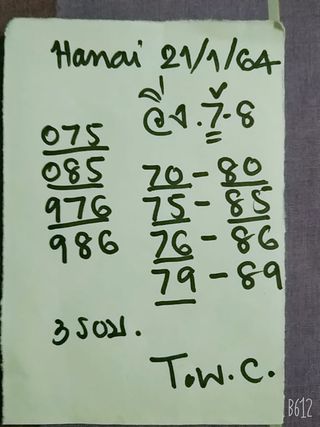 Hanai 21/1/64
วิ่ง.7-8
075
085
976
986
70-80
75-85
76-86
79-89
3 รอบ.
T.W.C.
B612